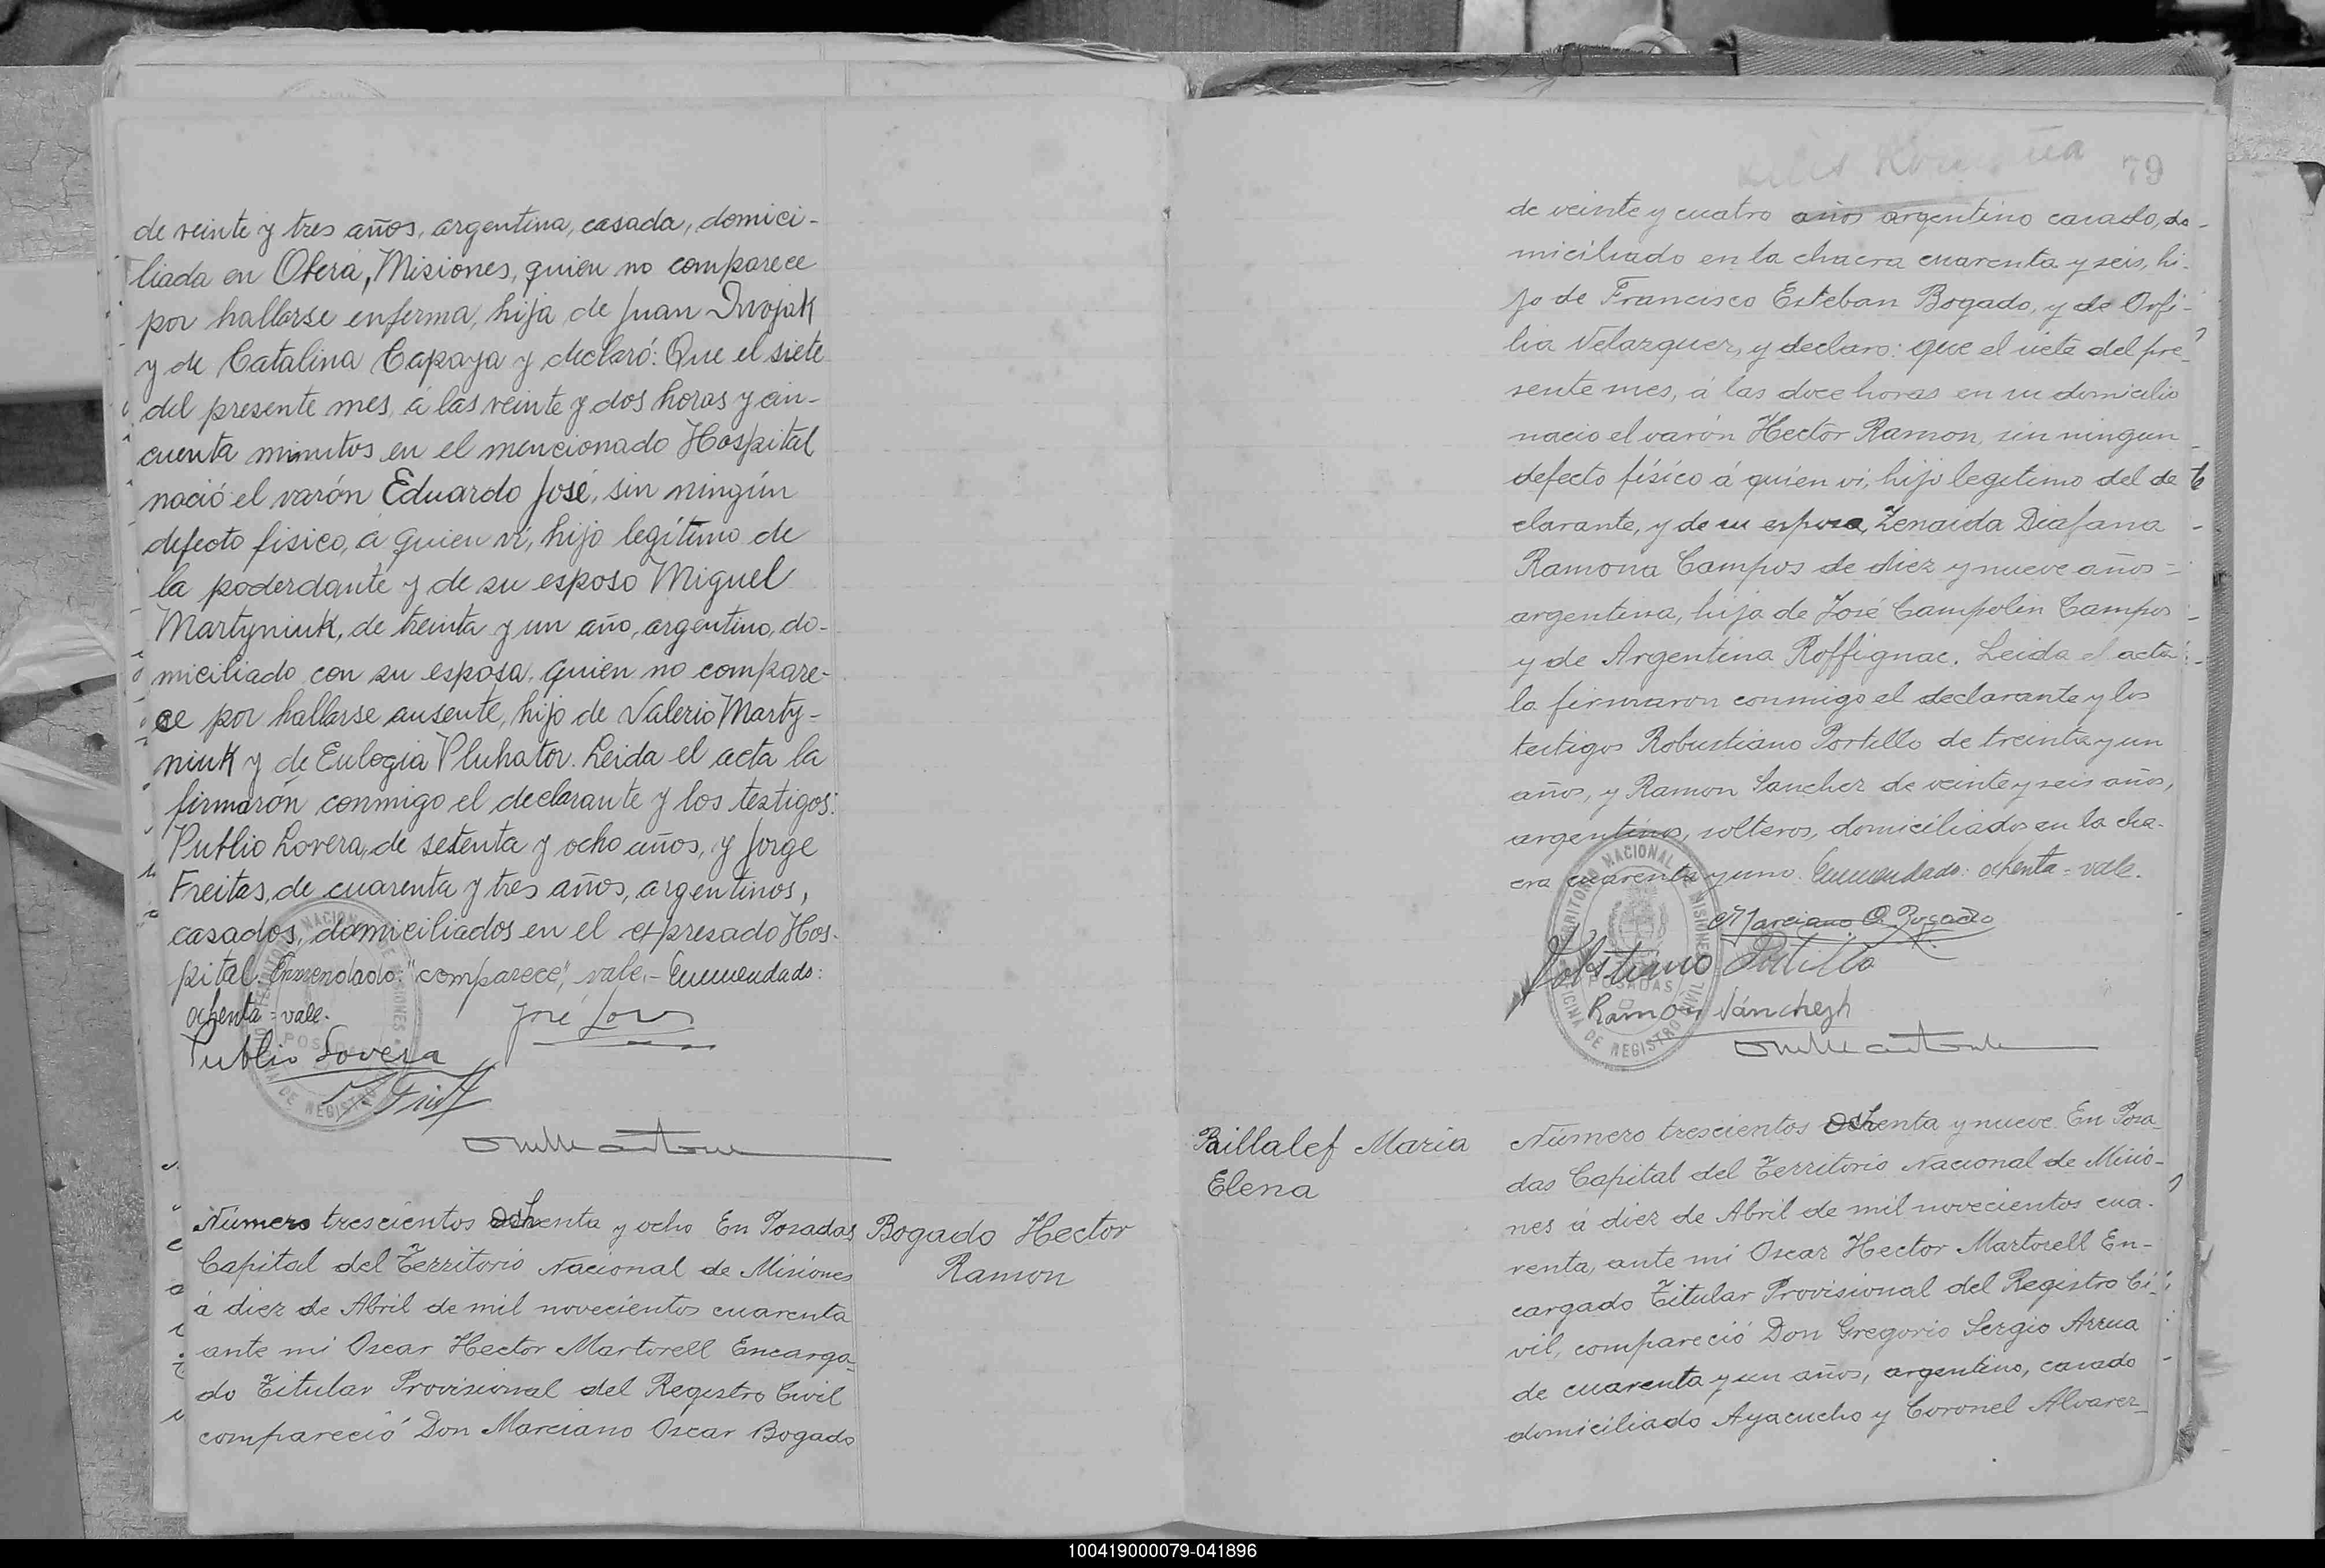 de veinte y tres años, argentina, casada, domici-
liada en Oberá, Misiones, quien no comparece
por hallarse enferma, hija de Juan Dwojak
y de Catalina Capaya y declaró: Que el siete
del presente mes, á las veinte y dos horas y cin-
cuenta minutos en el mencionado Hospital
nació el varón Eduardo José, sin ningún
defecto fisico, á quien vi, hijo legítimo de
la poderdante y de su esposo Miguel
Martyniuk, de treinta y un año, argentino, do-
miciliado con su esposa, quien no compare-
ce por hallarse ausente, hijo de Valerio Marty-
niuk y de Eulogia Pluhator. Leida el acta la
firmarón conmigo el declarante y los testigos:
Publio Lovera, de setenta y ocho años, y Jorge
Freitas, de cuarenta y tres años, argentinos,
casados, domiciliados en el expresado Hos-
pital. Enmendado: "comparece", vale.- Enmendado:
ochenta = vale.
José
Publio Lovera
TERRITORIO NACIONAL DE MISIONES
POSADAS
OFICINA DE REGISTRO CIVIL
Número trescientos ochenta y ocho En Posadas
Capital del Territorio Nacional de Misiones
á diez de Abril de mil novecientos cuarenta
ante mi Oscar Hector Martorell Encarga-
do Titular Provisional del Registro Civil
compareció Don Marciano Oscar Bogado
Bogado Hector
Ramon
79
de veinte y cuatro años argentino casado, do-
miciliado en la chacra cuarenta y seis, hi-
jo de Francisco Esteban Bogado, y de Orfi-
lia Velazquez, y declaro: que el siete del pre-
sente mes, á las doce horas en su domicilio
nacio el varón Hector Ramon, sin ningun
defecto físico á quién vi, hijo legitimo del de
clarante, y de su esposa, Zenaida Diafana
Ramona Campos de diez y nueve años
argentina, hija de José Campolin Campos
y de Argentina Roffignac. Leida el acta
la firmaron conmigo el declarante y los
testigos Robustiano Portillo de treinta y un
años, y Ramon Sanchez de veinte y seis años,
argentinos, solteros, domiciliados en la cha-
cra cuarenta y uno. Enmendado: ochenta = vale.
Marciano O. Bogado
Robstiano Portillo
Ramon Sánchezh
TERRITORIO NACIONAL DE MISIONES
POSADAS
OFICINA DE REGISTRO CIVIL
Paillalef Maria
Elena
Número trescientos ochenta y nueve En Posa-
das Capital del Territorio Nacional de Misio-
nes á diez de Abril de mil novecientos cua-
renta, ante mi Oscar Hector Martorell En-
cargado Titular Provisional del Registro Ci-
vil, compareció Don Gregorio Sergio Arrua
de cuarenta y un años, argentino, casado
domiciliado Ayacucho y Coronel Alvarez
100419000079-041896